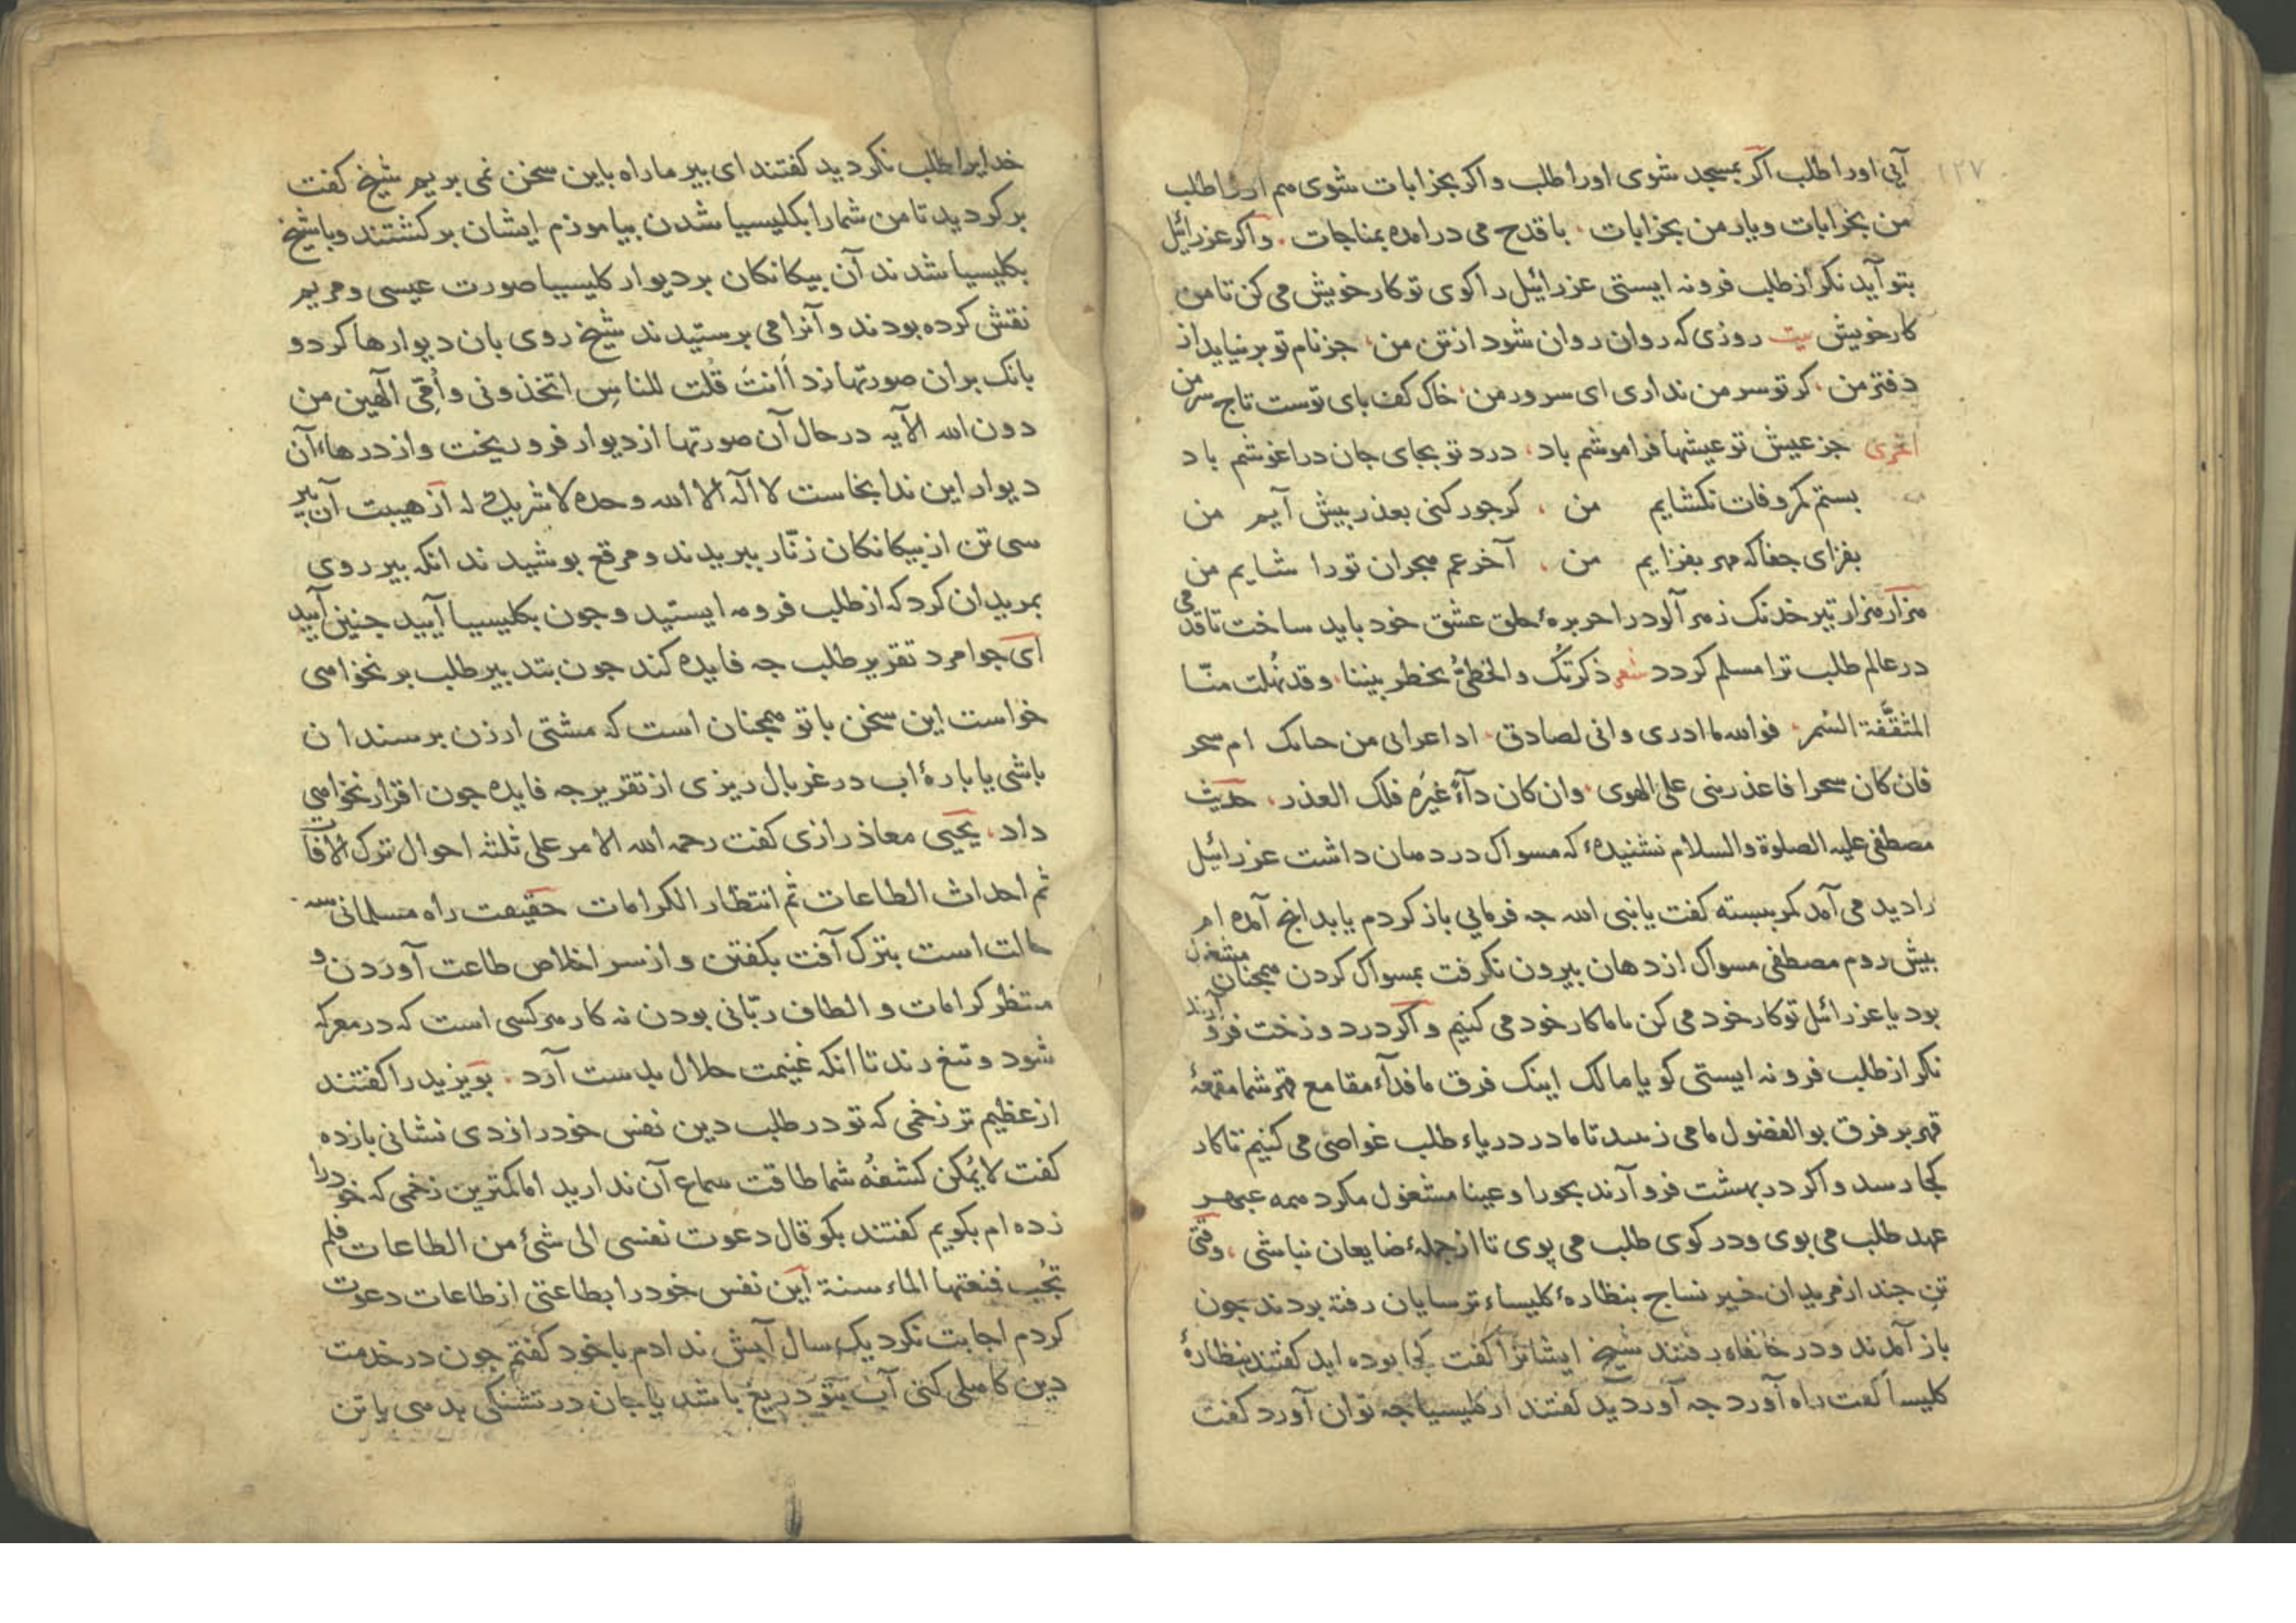 ۱۲۷
آیی اورا طلب اکر بمسجد شوی اورا طلب واکر بخرابات شوی هم اورا طلب
من بخرابات ویار من بخرابات ، با قدح می درامده بمناجات . واکر عزرائیل
بتو آید نکر از طلب فرو نه ایستی عزرائیل را کوی تو کار خویش می کن تا من
کار خویش بیت روزی که روان روان شود از تن من ، جز نام تو بر نیاید از
دفتر من ، کر تو سر من نداری ای سرور من ، خاک کف بای توست تاج سر من
اخری جز عیش تو عیشها فراموشم باد ، درد تو بجای جان دراغوشم باد
بستم کمر وفات نکشایم من ، کر جور کنی بعذر بیش آیم من
بفزای جفا که مهر بفزایم من ، آخر غم هجران تو را شایم من
هزار هزار تیر خدنک زهر آلود را حربرهٔ حلق عشق خود باید ساخت تا قدمی
در عالم طلب ترا مسلم کردد شعر ذکرتک والخطیُّ یخطر بیننا ، وقد نهلت منّا
المثقَّفة السُمر ، فوالله ما ادری وانی لصادق ، اداء عرانی من حبابک ام سحر
فان کان سحرا فاعذرینی علی الهوی ، وان کان دآءً غیرَه فلک العذر ، حدیث
مصطفی علیه الصلوة والسلام نشنیدهٔ که مسواک در دهان داشت عزرائیل
را دید می آمد کمر ببسته کفت یا نبی الله جه فرمایی باز کردم یا بدانج آمده ام
بیش روم مصطفی مسواک از دهان بیرون نکرفت بمسواک کردن همجنان مشغول
بود یا عزرائیل تو کار خود می کن تا ما کار خود می کنیم واکر در دوزخت فرو آرند
نکر از طلب فرو نه ایستی کو یا مالک اینک فرق ما فدآء مقامع قهر شما مقمعهٔ
قهر بر فرق بوالفضول ما می زنسد تا ما در دریاء طلب غواصی می کنیم تا کار
کجا رسد واکر در بهشت فرو آرند بحورا وعینا مشغول مکرد همه عبهر
عهد طلب می بوی ودر کوی طلب می پوی تا از جملهٔ ضایعان نباشی ، وقتی
تنِ جند از مریدان خیر نساج بنظارهٔ کلیساء ترسایان رفته بردند جون
باز آمدند ودر خانقاه رفتند شیخ ایشانرا کفت کجا بوده اید کفتند بنظارهٔ
کلیسا کفت راه آورد جه آوردید کفتند از کلیسیا جه توان آورد کفت
خدایرا طلب نکردید کفتند ای بیر ما راه باین سخن نمی بریم شیخ کفت
بر کردید تا من شما را بکلیسیا شدن بیاموزم ایشان بر کشتند وبا شیخ
بکلیسیا شدند آن بیکانکان بر دیوار کلیسیا صورت عیسی ومریم
نقش کرده بودند وآنرا می برستیدند شیخ روی بان دیوارها کرد و
بانک بران صورتها زد أَانتَ قُلت للناسِ اتخذونی وأُمّی آلهین من
دون الله الآیه در حال آن صورتها از دیوار فرو ریخت واز درهاء آن
دیوار این ندا بخاست لا اله الا الله وحده لا شریک له از هیبت آن بیر
سی تن از بیکانکان زنّار ببریدند ومرقع بوشیدند انکه بیر روی
بمریدان کرد که از طلب فرو مه ایستید وجون بکلیسیا آیید جنین آیید
ای جوامرد تقریر طلب جه فایده کند جون بتدبیر طلب بر نخواهی
خواست این سخن با تو همجنان است که مشتی ارزن بر سندان
باشی یا بارهٔ اب در غربال ریزی از تقریر جه فایده جون اقرار نخواهی
داد ، یحیی معاذ رازی کفت رحمه الله الامر علی ثلثه احوال ترک الآفات
ثم احداث الطاعات ثم انتظار الکرامات حقیقت راه مسلمانی سه
حالت است بترک آفت بکفتن واز سر اخلاص طاعت آوردن و
منتظر کرامات و الطاف ربّانی بودن نه کار هر کسی است که در معرکه
شود وتیغ زند تا انکه غنیمت حلال بدست آرد . بویزید را کفتند
از عظیم تر زخمی که تو در طلب دین نفس خود را زدی نشانی بازده
کفت لا یُمکن کشفُه شما طاقت سماع آن ندارید اما کمترین زخمی که خود را
زده ام بکویم کفتند بکو قال دعوت نفسی الی شئ من الطاعات فلم
تجُب فمنعتها الماء سنة این نفس خود را بطاعتی از طاعات دعوت
کردم اجابت نکرد یک سال آبش ندادم با خود کفتم جون در خدمت
دین کاهلی کنی آب بتو دریغ باشد یا جان در تشنکی بدهی یا تن